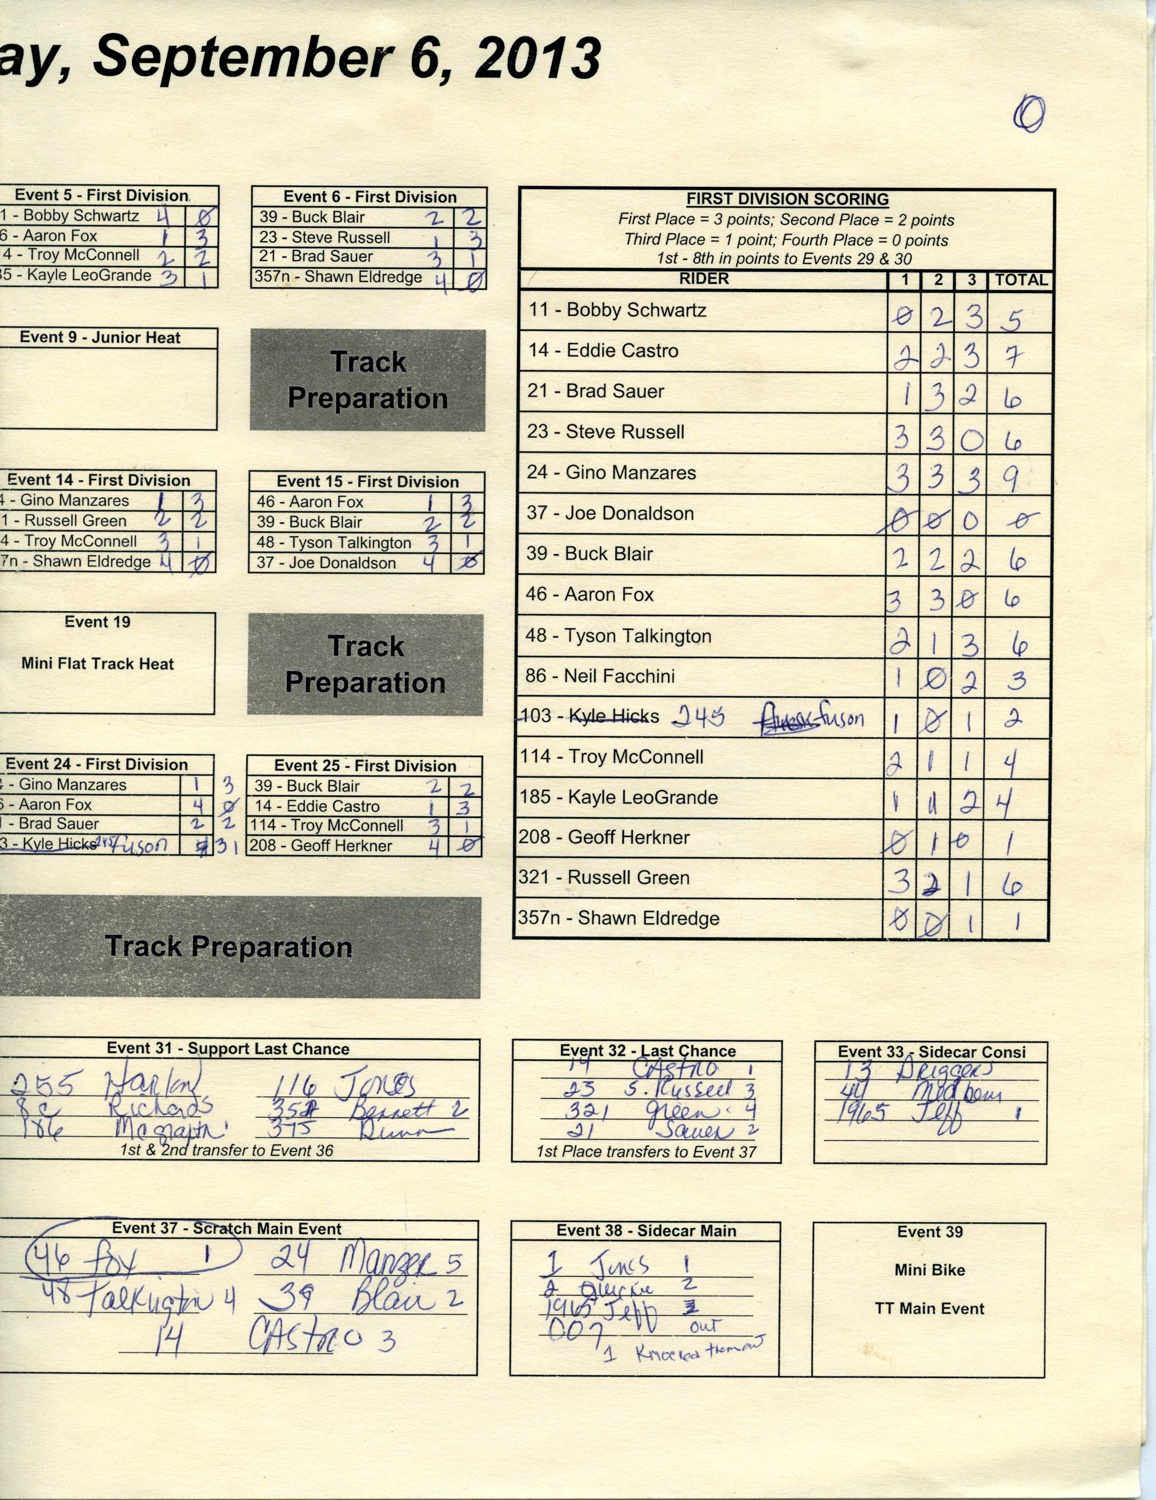 ay, September 6, 2013
0
Event 5 - First Division
1 - Bobby Schwartz 4 0
6 - Aaron Fox 1 3
4 - Troy McConnell 2 2
35 - Kayle LeoGrande 3 1
Event 6 - First Division
39 - Buck Blair 2 2
23 - Steve Russell 1 3
21 - Brad Sauer 3 1
357n - Shawn Eldredge 4 0
FIRST DIVISION SCORING
First Place = 3 points; Second Place = 2 points
Third Place = 1 point; Fourth Place = 0 points
1st - 8th in points to Events 29 & 30
RIDER 1 2 3 TOTAL
11 - Bobby Schwartz 0 2 3 5
14 - Eddie Castro 2 2 3 7
21 - Brad Sauer 1 3 2 6
23 - Steve Russell 3 3 0 6
24 - Gino Manzares 3 3 3 9
37 - Joe Donaldson 0 0 0 0
39 - Buck Blair 2 2 2 6
46 - Aaron Fox 3 3 0 6
48 - Tyson Talkington 2 1 3 6
86 - Neil Facchini 1 0 2 3
103 - Kyle Hicks 245 fuson 1 0 1 2
114 - Troy McConnell 2 1 1 4
185 - Kayle LeoGrande 1 1 2 4
208 - Geoff Herkner 0 1 0 1
321 - Russell Green 3 2 1 6
357n - Shawn Eldredge 0 0 1 1
Event 9 - Junior Heat
Track
Preparation
Event 14 - First Division
4 - Gino Manzares 1 3
1 - Russell Green 2 2
4 - Troy McConnell 3 1
7n - Shawn Eldredge 4 0
Event 15 - First Division
46 - Aaron Fox 1 3
39 - Buck Blair 2 2
48 - Tyson Talkington 3 1
37 - Joe Donaldson 4 0
Event 19
Mini Flat Track Heat
Track
Preparation
Event 24 - First Division
- Gino Manzares 1 3
6 - Aaron Fox 4 0
- Brad Sauer 2 2
3 - Kyle Hicks 245 fuson 3 1
Event 25 - First Division
39 - Buck Blair 2 2
14 - Eddie Castro 1 3
114 - Troy McConnell 3 1
208 - Geoff Herkner 4 0
Track Preparation
Event 31 - Support Last Chance
255 Harland 116 Jones
Richards Bennett 2
186 McGrath 375 Dunn
1st & 2nd transfer to Event 36
Event 32 - Last Chance
14 CAstro 1
23 S. Russell 3
321 green 4
21 Sauer 2
1st Place transfers to Event 37
Event 33 - Sidecar Consi
13 Driggers
44
1965 Jeff 1
Event 37 - Scratch Main Event
46 fox 1 24 Manzer 5
48 Talkington 4 39 Blair 2
14 CAstro 3
Event 38 - Sidecar Main
1 Jones 1
2 2
1965 Jeff 3
007 out
1 Knocked them out
Event 39
Mini Bike
TT Main Event